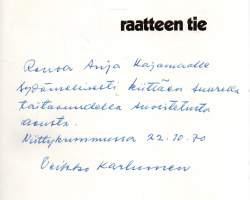 raatteen tie
Rouva Anja Kajamaalle
sydämellisesti kiittäen suurella
taitavuudella suoritetusta
avusta.
Niittykummussa 22.10.70
Veikko Karhunen